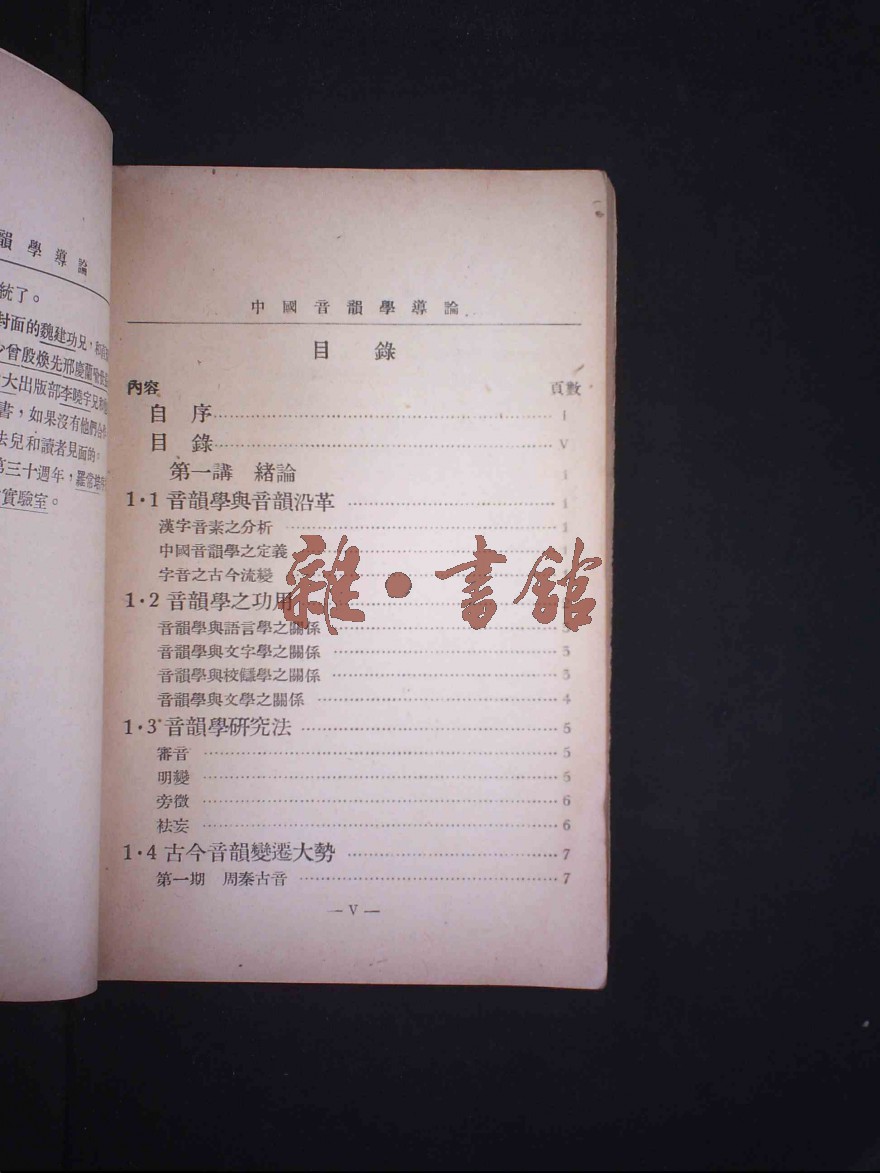 韻學導論
統了。
封面的魏建功兄，和
曾殷煥先邢慶蘭
大出版部李曉宇兄和
書，如果沒有他們合作
法兒和讀者見面的。
第三十週年，羅常培
實驗室。
中國音韻學導論
目 錄
內容 頁數
自 序 i
目 錄 V
第一講 緒論 1
1·1 音韻學與音韻沿革 1
漢字音素之分析 1
中國音韻學之定義 1
字音之古今流變
1·2 音韻學之功用
音韻學與語言學之關係 3
音韻學與文字學之關係 3
音韻學與校讎學之關係 3
音韻學與文學之關係 4
1·3 音韻學研究法 5
審音 5
明變 5
旁徵 6
袪妄 6
1·4 古今音韻變遷大勢 7
第一期 周秦古音 7
— V —
雜·書館